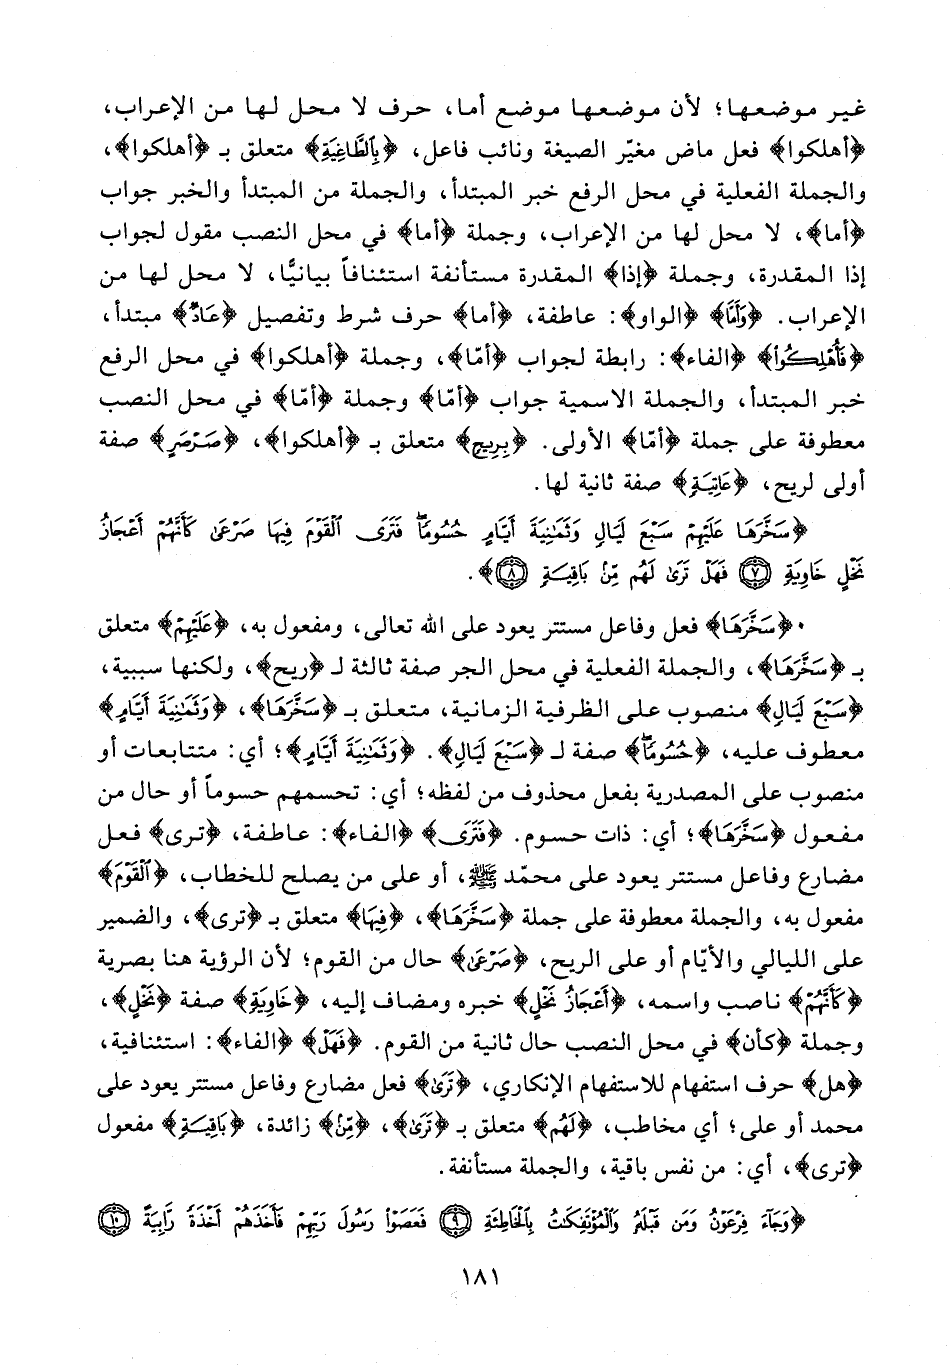 غير موضعها؛ لأن موضعها موضع أما، حرف لا محل لها من الإعراب،
﴿أهلكوا﴾ فعل ماض مغيّر الصيغة ونائب فاعل، ﴿بِٱلطَّاغِيَةِ﴾ متعلق بـ ﴿أهلكوا﴾،
والجملة الفعلية في محل الرفع خبر المبتدأ، والجملة من المبتدأ والخبر جواب
﴿أما﴾، لا محل لها من الإعراب، وجملة ﴿أما﴾ في محل النصب مقول لجواب
إذا المقدرة، وجملة ﴿إذا﴾ المقدرة مستأنفة استئنافاً بيانيًّا، لا محل لها من
الإعراب. ﴿وَأَمَّا﴾ ﴿الواو﴾: عاطفة، ﴿أما﴾ حرف شرط وتفصيل ﴿عَادٌ﴾ مبتدأ،
﴿فَأُهْلِكُوا۟﴾ ﴿الفاء﴾: رابطة لجواب ﴿أمّا﴾، وجملة ﴿أهلكوا﴾ في محل الرفع
خبر المبتدأ، والجملة الاسمية جواب ﴿أمّا﴾ وجملة ﴿أمّا﴾ في محل النصب
معطوفة على جملة ﴿أمّا﴾ الأولى. ﴿بِرِيحٍ﴾ متعلق بـ ﴿أهلكوا﴾، ﴿صَرْصَرٍ﴾ صفة
أولى لريح، ﴿عَاتِيَةٍ﴾ صفة ثانية لها.
﴿سَخَّرَهَا عَلَيْهِمْ سَبْعَ لَيَالٍ وَثَمَٰنِيَةَ أَيَّامٍ حُسُومًاۖ فَتَرَى ٱلْقَوْمَ فِيهَا صَرْعَىٰ كَأَنَّهُمْ أَعْجَازُ
نَخْلٍ خَاوِيَةٍ ۝٧ فَهَلْ تَرَىٰ لَهُم مِّنۢ بَاقِيَةٍ ۝٨﴾.
﴿سَخَّرَهَا﴾ فعل وفاعل مستتر يعود على الله تعالى، ومفعول به، ﴿عَلَيْهِمْ﴾ متعلق
بـ ﴿سَخَّرَهَا﴾، والجملة الفعلية في محل الجر صفة ثالثة لـ ﴿ريح﴾، ولكنها سببية،
﴿سَبْعَ لَيَالٍ﴾ منصوب على الظرفية الزمانية، متعلق بـ ﴿سَخَّرَهَا﴾، ﴿وَثَمَٰنِيَةَ أَيَّامٍ﴾
معطوف عليه، ﴿حُسُومًاۖ﴾ صفة لـ ﴿سَبْعَ لَيَالٍ﴾. ﴿وَثَمَٰنِيَةَ أَيَّامٍ﴾؛ أي: متتابعات أو
منصوب على المصدرية بفعل محذوف من لفظه؛ أي: تحسمهم حسوماً أو حال من
مفعول ﴿سَخَّرَهَا﴾؛ أي: ذات حسوم. ﴿فَتَرَى﴾ ﴿الفاء﴾: عاطفة، ﴿ترى﴾ فعل
مضارع وفاعل مستتر يعود على محمّد ﷺ، أو على من يصلح للخطاب، ﴿ٱلْقَوْمَ﴾
مفعول به، والجملة معطوفة على جملة ﴿سَخَّرَهَا﴾، ﴿فِيهَا﴾ متعلق بـ ﴿ترى﴾، والضمير
على الليالي والأيّام أو على الريح، ﴿صَرْعَىٰ﴾ حال من القوم؛ لأن الرؤية هنا بصرية
﴿كَأَنَّهُمْ﴾ ناصب واسمه، ﴿أَعْجَازُ نَخْلٍ﴾ خبره ومضاف إليه، ﴿خَاوِيَةٍ﴾ صفة ﴿نَخْلٍ﴾،
وجملة ﴿كأن﴾ في محل النصب حال ثانية من القوم. ﴿فَهَلْ﴾ ﴿الفاء﴾: استئنافية،
﴿هل﴾ حرف استفهام للاستفهام الإنكاري، ﴿تَرَىٰ﴾ فعل مضارع وفاعل مستتر يعود على
محمد أو على؛ أي مخاطب، ﴿لَهُم﴾ متعلق بـ ﴿تَرَىٰ﴾، ﴿مِّنۢ﴾ زائدة، ﴿بَاقِيَةٍ﴾ مفعول
﴿ترى﴾، أي: من نفس باقية، والجملة مستأنفة.
﴿وَجَآءَ فِرْعَوْنُ وَمَن قَبْلَهُۥ وَٱلْمُؤْتَفِكَٰتُ بِٱلْخَاطِئَةِ ۝٩ فَعَصَوْا۟ رَسُولَ رَبِّهِمْ فَأَخَذَهُمْ أَخْذَةً رَّابِيَةً ۝١٠
١٨١